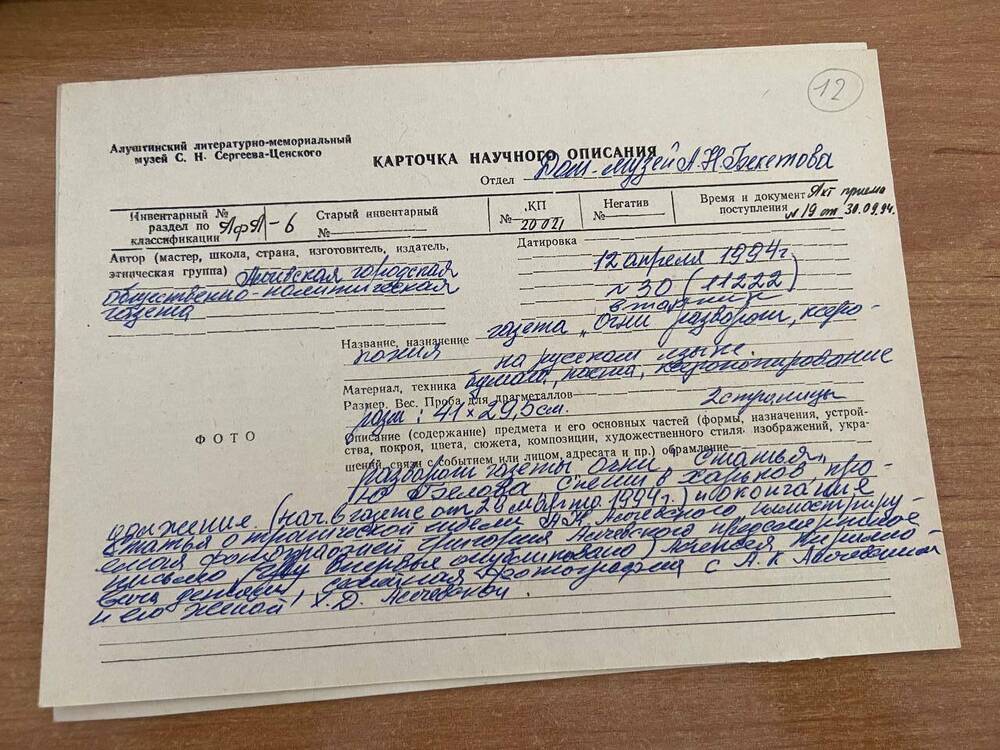 12
Алуштинский литературно-мемориальный
музей С. Н. Сергеева-Ценского
КАРТОЧКА НАУЧНОГО ОПИСАНИЯ
Отдел Дом-музей А.Н. Бекетова
Инвентарный №
раздел по
классификации АфА-6
Старый инвентарный
№
КП
№ 20021
Негатив
№
Время и документ
поступления Акт приема
№ 19 от 30.09.94.
Автор (мастер, школа, страна, изготовитель, издатель,
этническая группа) городская
общественно-политическая
газета
Датировка
12 апреля 1994 г
№ 30 (11222)
вторник
Название, назначение газета „Огни разворот, ксеро-
копия на русском языке.
Материал, техника бумага, паста, ксерокопирование
Размер. Вес. Проба для драгметаллов
разм: 41 × 29,5 см. 2 страницы
ФОТО
Описание (содержание) предмета и его основных частей (формы, назначения, устрой-
ства, покроя, цвета, сюжета, композиции, художественного стиля изображений, укра-
шений, связи с событием или лицом, адресата и пр.) обрамление
разворот газеты Огни статья
Ю Белова, Спеши в Харьков про-
должение. (нач. в газете от марта 1994 г.) и окончание
Статья о трагической гибели А.К. Алчевского, иллюстриру-
емая фотографией Григория Алчевского предсмертное
письмо впервые опубликовано) Алексея Кирилло-
вича фотография с А. К Алчевским
и его женой Х.Д. Алчевской.